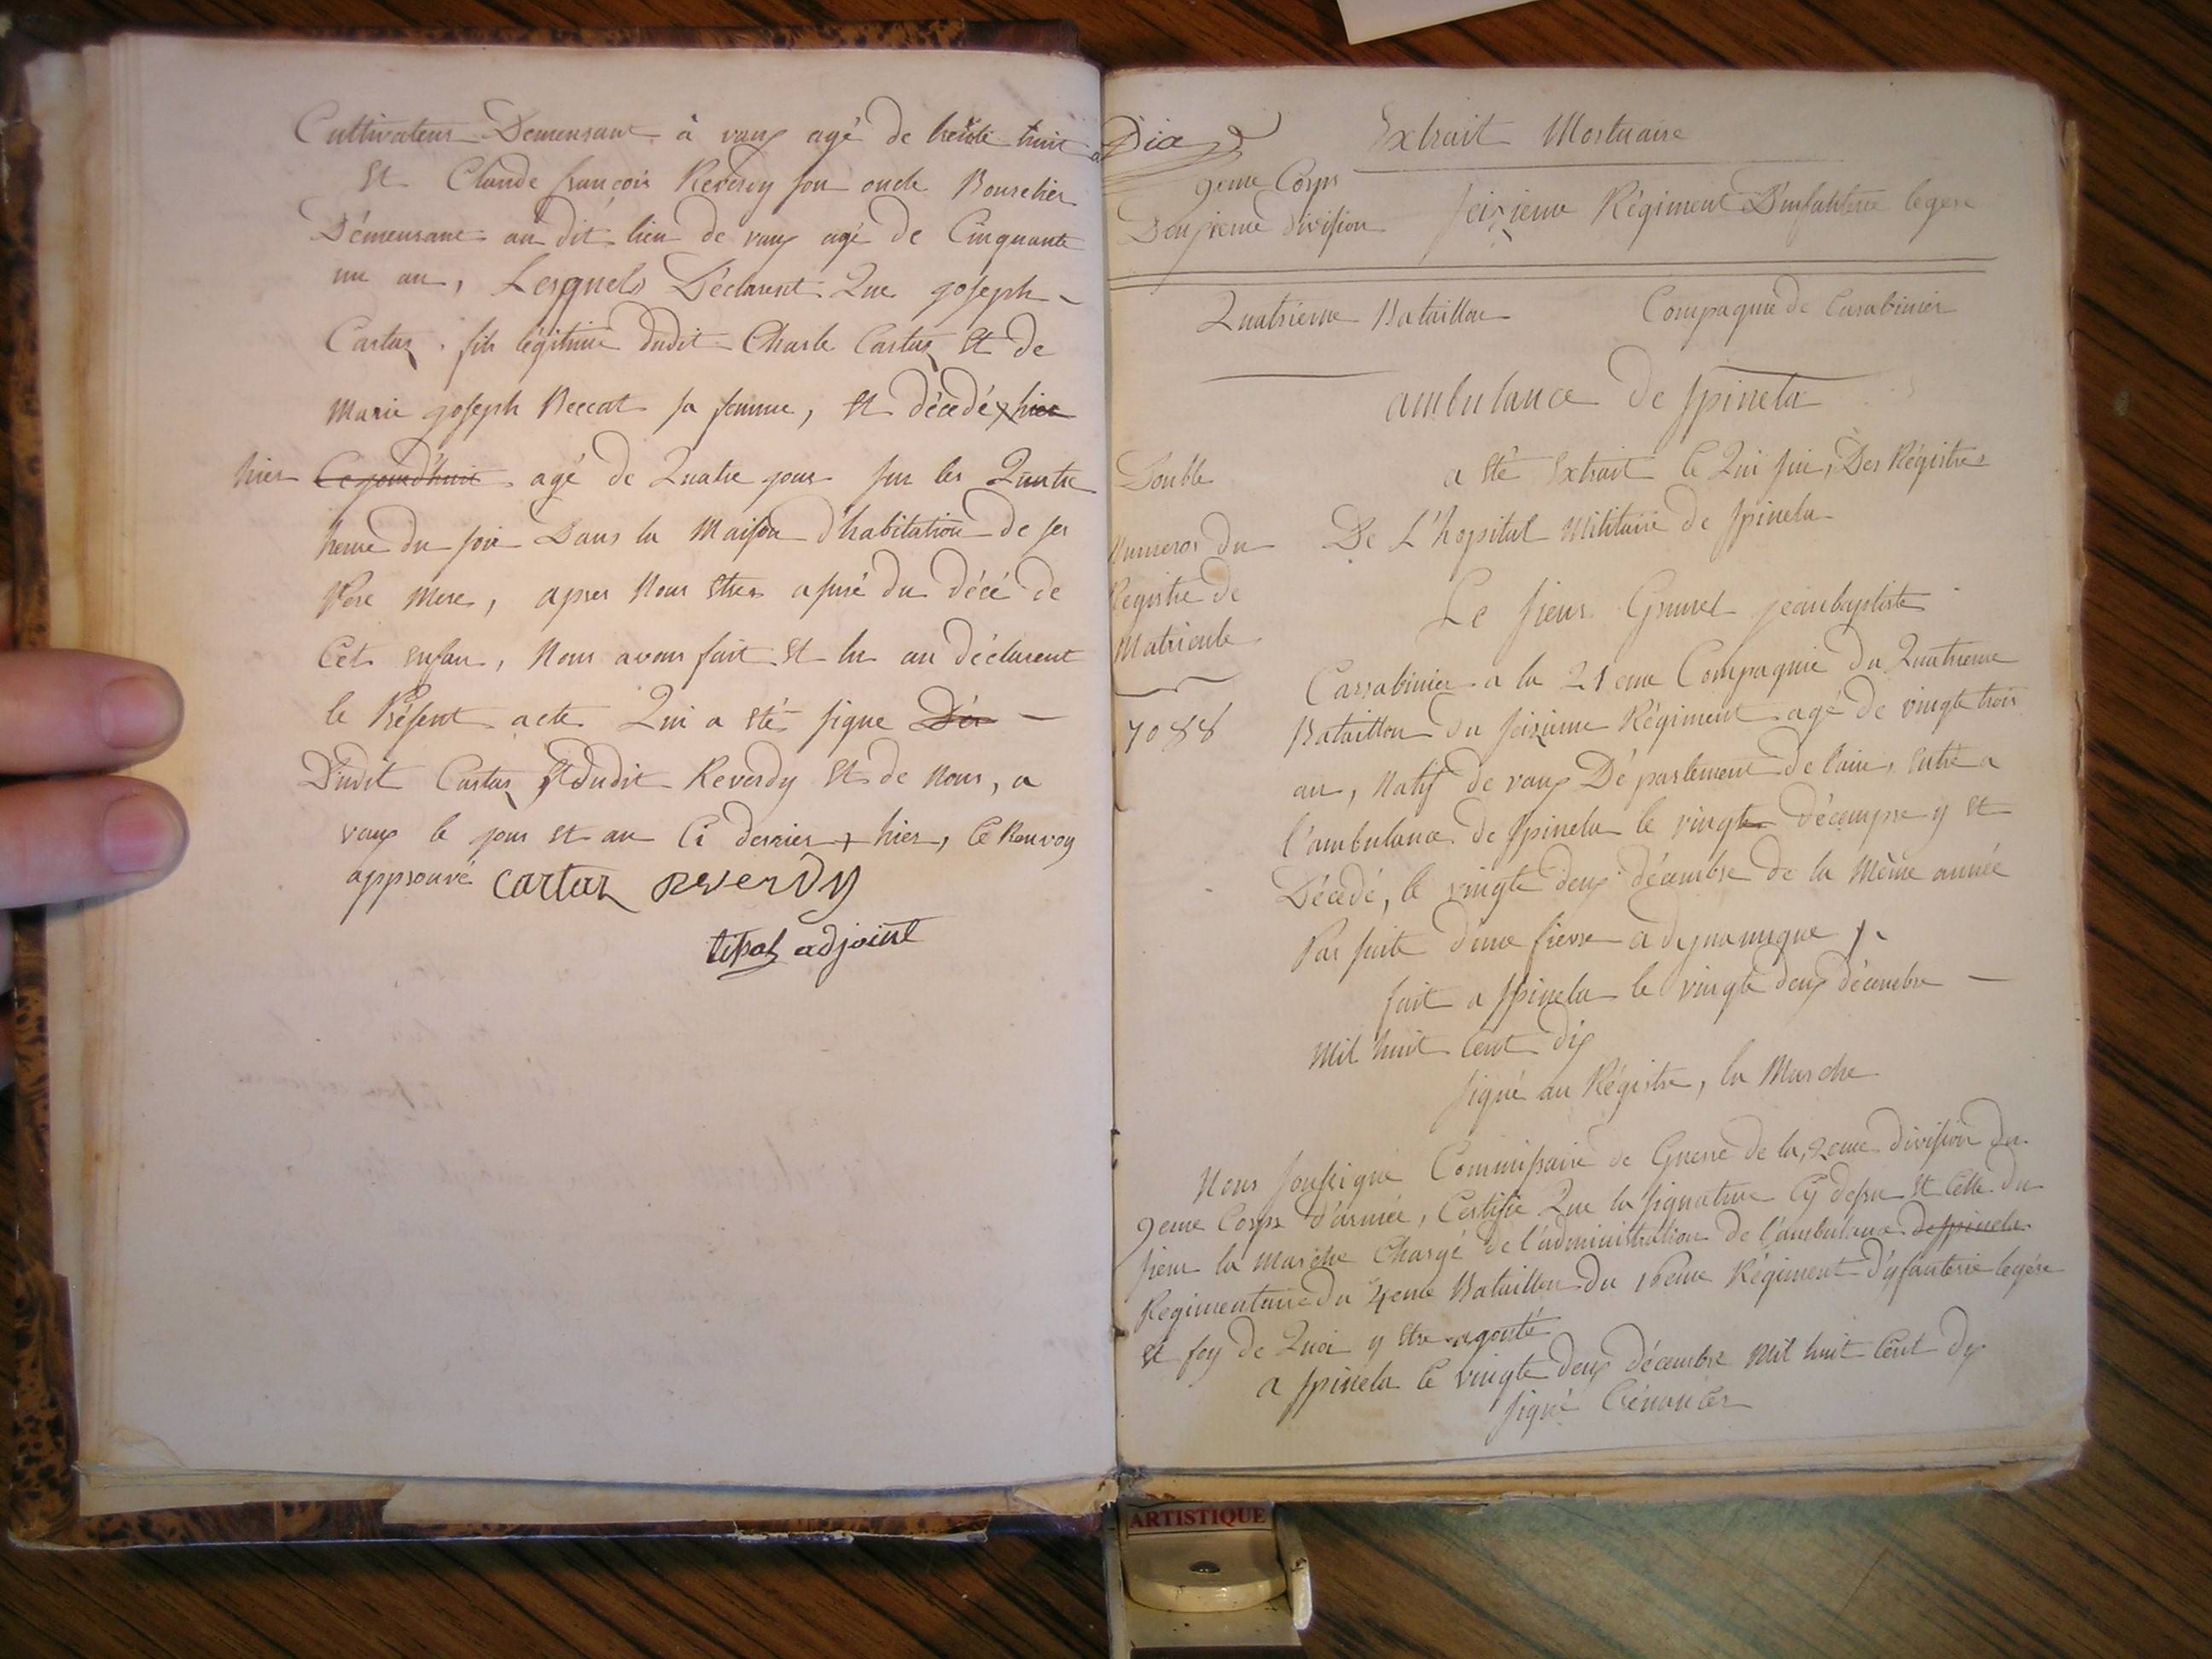 Cultivateur Demeurant à vaux agé de trente huit
Et Claude françois Reverdy son oncle Bourelier
Démeurant au dit lieu de vaux agé de Cinquante
un an, Lesquels Déclarent Que joseph
Cartaz fils légitime dudit Charle Cartaz Et de
Marie joseph Beccat sa femme, Et décedé x hier
hier Ce jourd'huit agé de Quatre jour sur les Quatre
heure du soir Dans la Maison d'habitation de ses
Père Mere, apres Nous Etres assuré du décé de
Cet enfan, Nous avons fait Et lu au déclarent
le Présent acte Qui a été signe Des
Dudit Cartaz Et dudit Reverdy Et de Nous, a
vaux le jour et an Ci dernier + hier, le Renvoy
approuvé cartaz Reverdy
adjoint
Extrait Mortuaire
9eme Corps
Deuxieme division Seizieme Régiment D'infanterie legere
Quatrieme Bataillon Compagnie de Carabinier
ambulance De Spinela
Double
a Eté Extrait Ce Qui suit, Des Régistres
De L'hopital Militaire de Spinela
Numeros du
Registre de
Matricule
7088
Le sieur Grumel jeanbaptiste
Carrabinier a la 21eme Compagnie du Quatrieme
Bataillon du seizieme Régiment agé de vingte trois
an, Natif de vaux Département de l'ain, entré a
l'ambulance de Spinela le vingte décempre y Et
Décedé, le vingte deux décembre de la Même année
Par suite d'une fievre adynamique
fait a Spinela le vingte deux décembre
Mil huit Cent dix
signé au Régistre, la Marche
Nous soussigné Commissaire de Guerre de la 2eme division du
9eme Corps d'armée, Certifie Que la signature Cy dessu Et Celle du
sieur la Marche Chargé de l'administration de l'ambulance de spinela
Regimentaire du 4eme Bataillon du 16eme Régiment d'yfanterie legére
Et foy de Quoi y Etre agouté
a Spinela le vingte deux décembre Mil huit Cent dix
signé
ARTISTIQUE